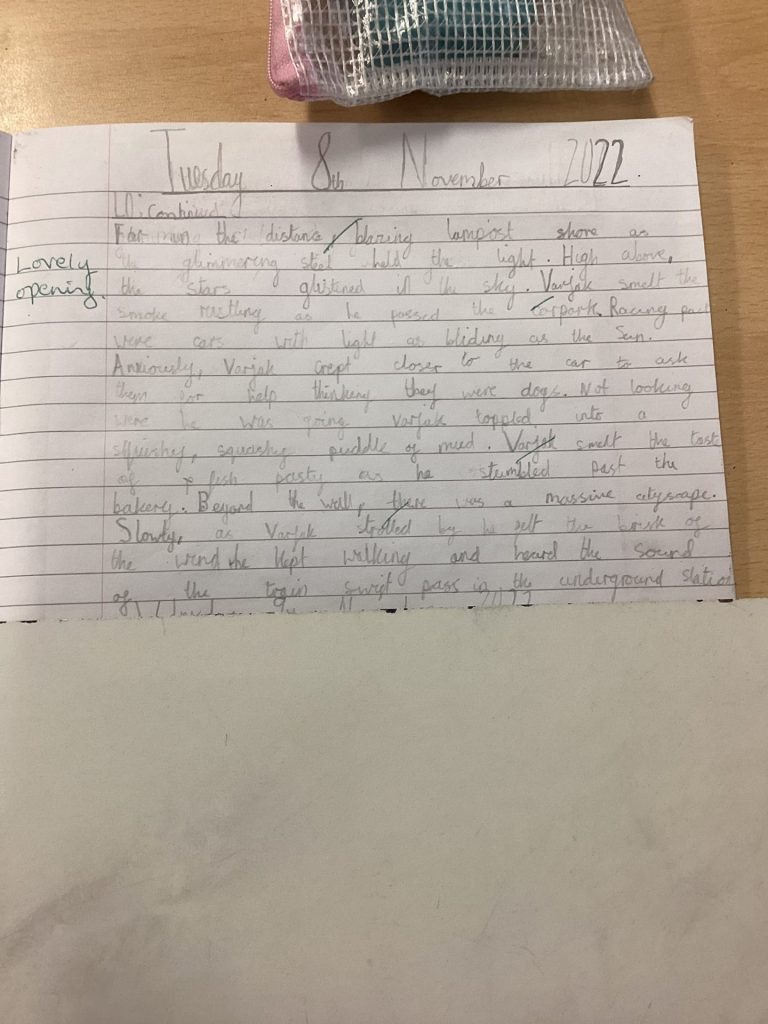 Tuesday 8th November 2022
LO: continued
Far in the distance, blazing lampost shone as
Lovely
opening.
the glimmering steel held the light. High above,
the stars glistened in the sky. Varjak smelt the
smoke rustling as he passed the carpark. Racing past
were cars with light as bliding as the Sun.
Anxiously, Varjak crept closer to the car to ask
them for help thinking they were dogs. Not looking
were he was going Varjak toppled into a
squishy, squashy puddle of mud. Varjak smelt the tast
of fish pasty as he stumbled past the
bakery. Beyond the wall, there was a massive cityscape.
Slowly, as Varjak strolled by he felt the brisk of
the wind he kept walking and heard the sound
of the train swift pass in the underground station